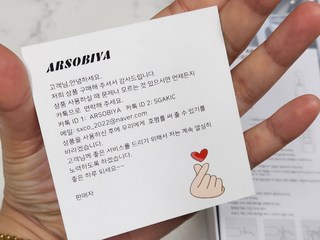 ARSOBIYA
고객님,안녕하세요.
저희 상품 구매해 주셔서 감사드립니다.
상품 사용하실 때 문제나 모르는 것 있으시면 언제든지
카톡으로 연락해 주세요.
카톡 ID 1: ARSOBIYA 카톡 ID 2: SGAKIC
메일: sxco_2022@naver.com
상품을 사용하신 후에 우리에게 호평를 써 줄 수 있기를
바라겠습니다.
고객님께 좋은 서비스를 드리기 위해서 저는 계속 열심히
노력하도록 하겠습니다.
좋은 하루 되세요~~
판매자